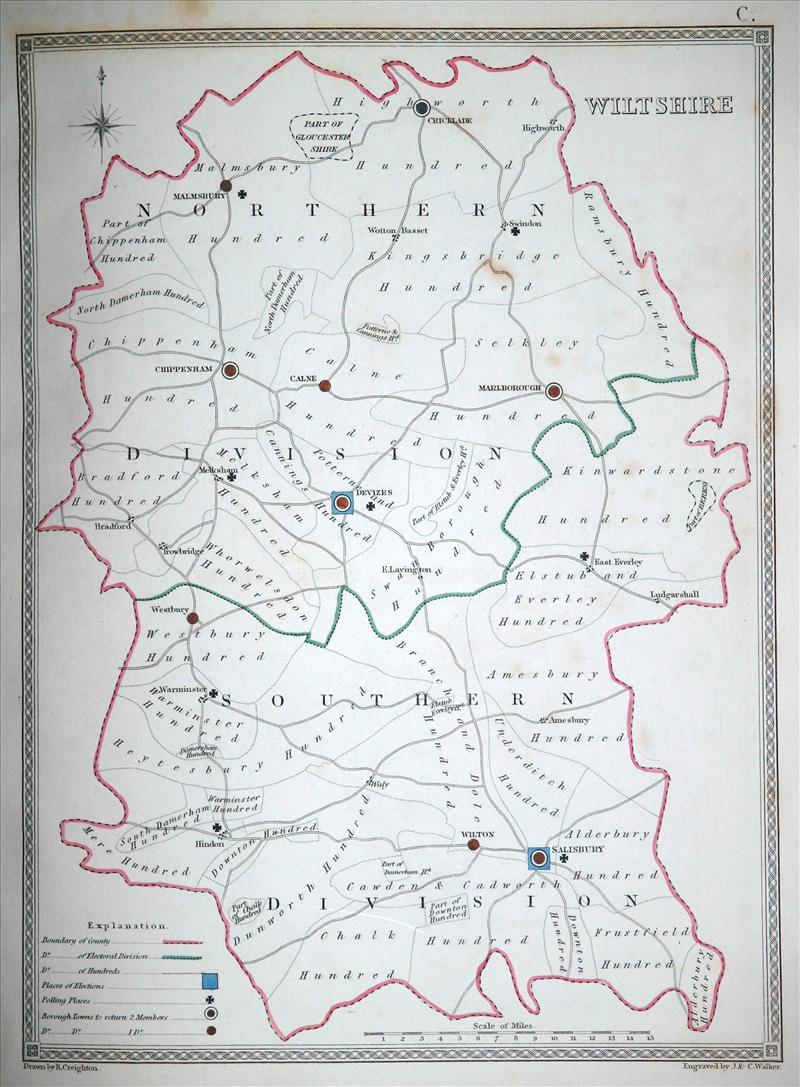 C.
WILTSHIRE
Highworth
Hundred
PART OF
GLOUCESTER
SHIRE
CRICKLADE
Highworth
Malmsbury
Hundred
MALMSBURY
NORTHERN
Part of
Chippenham
Hundred
Ramsbury
Hundred
Wotton Basset
Swindon
Kingsbridge
Hundred
North Damerham Hundred
Part of
North Damerham
Hundred
Potterne &
Cannings Hd.
Chippenham
Hundred
CHIPPENHAM
Calne
Hundred
CALNE
Selkley
Hundred
MARLBOROUGH
DIVISION
Bradford
Hundred
Melksham
Melksham
Hundred
Cannings
Potterne and
Hundred
DEVIZES
Part of Elstub & Everley Hd.
Swanborough
Hundred
Kinwardstone
Hundred
Part of BERKS
Bradford
Trowbridge
Whorwelsdon
Hundred
E.Lavington
East Everley
Elstub and
Everley
Hundred
Ludgarshall
Westbury
Westbury
Hundred
Branch and Dole
Hundred
Amesbury
Hundred
SOUTHERN
Warminster
Warminster
Hundred
Elstub
Everley Hd.
Amesbury
Underditch
Hundred
Damerham
Hundred
Heytesbury Hundred
Wily
Warminster
Hundred
South Damerham
Hundred
Mere
Hundred
Hindon
Downton Hundred
WILTON
SALISBURY
Alderbury
Hundred
Part of
Damerham Hd.
Cawden & Cadworth
Hundred
DIVISION
Dunworth Hundred
Part
of Chalk
Hundred
Part of
Downton
Hundred
Chalk
Hundred
Downton
Hundred
Frustfield
Hundred
Alderbury
Hundred
Explanation.
Boundary of County
Do. of Electoral Division
Do. of Hundreds
Places of Elections
Polling Places
Borough Towns to return 2 Members
Do. Do. 1 Do.
Scale of Miles.
1 2 3 4 5 6 7 8 9 10 11 12 13 14 15
Drawn by R.Creighton.
Engraved by J.& C.Walker.